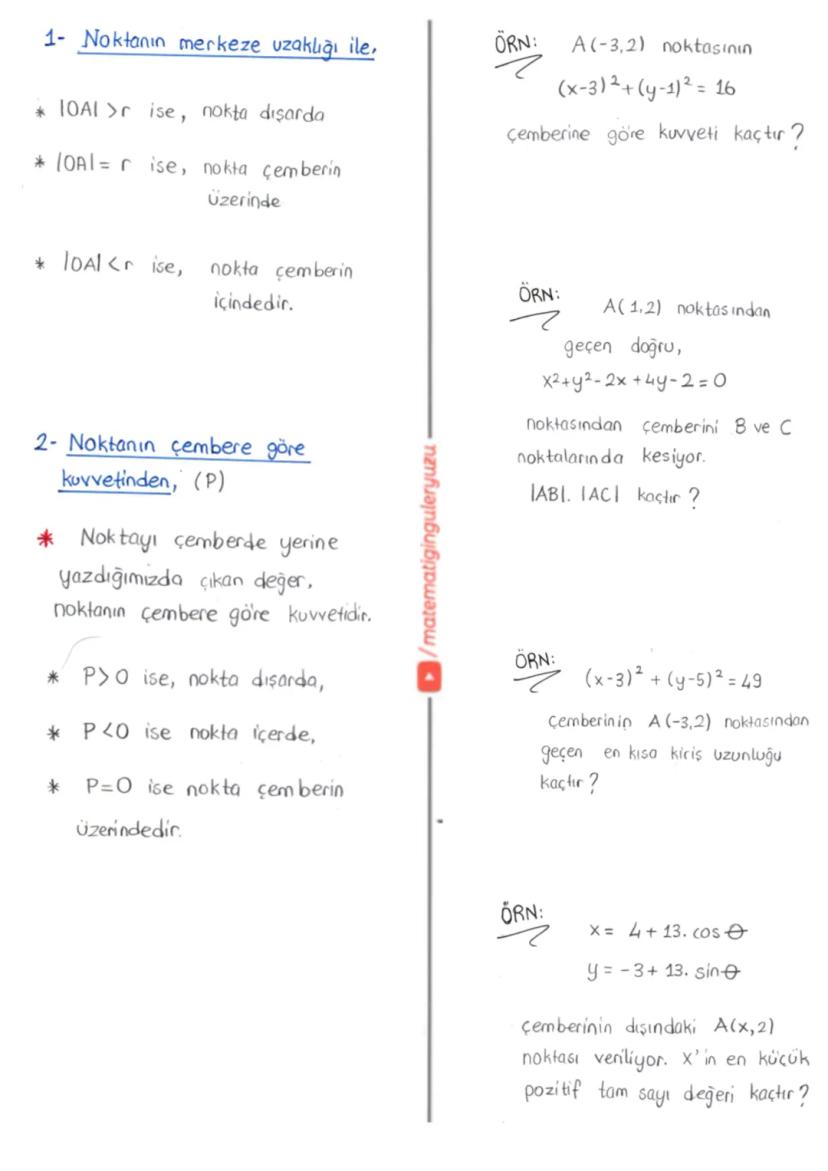 1- Noktanın merkeze uzaklığı ile,
* |OA| > r ise, nokta dışarda
* |OA| = r ise, nokta çemberin
üzerinde
* |OA| < r ise, nokta çemberin
içindedir.
2- Noktanın çembere göre
kuvvetinden, (P)
* Noktayı çemberde yerine
yazdığımızda çıkan değer,
noktanın çembere göre kuvvetidir.
* P>0 ise, nokta dışarda,
* P<0 ise nokta içerde,
* P=0 ise nokta çemberin
üzerindedir.
/matematiginguleryuzu
ÖRN: A(-3,2) noktasının
(x-3)² + (y-1)² = 16
çemberine göre kuvveti kaçtır?
ÖRN: A(1,2) noktasından
geçen doğru,
x²+y²-2x+4y-2=0
noktasından çemberini B ve C
noktalarında kesiyor.
|AB|. |AC| kaçtır?
ÖRN: (x-3)² + (y-5)² = 49
çemberinin A(-3,2) noktasından
geçen en kısa kiriş uzunluğu
kaçtır?
ÖRN: x = 4 + 13. cos θ
y = -3 + 13. sin θ
çemberinin dışındaki A(x,2)
noktası veriliyor. x'in en küçük
pozitif tam sayı değeri kaçtır?